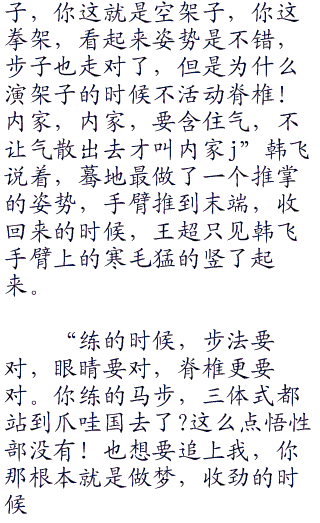 子，你这就是空架子，你这
拳架，看起来姿势是不错，
步子也走对了，但是为什么
演架子的时候不活动脊椎！
内家，内家，要含住气，不
让气散出去才叫内家j”韩飞
说着，蓦地最做了一个推掌
的姿势，手臂推到末端，收
回来的时候，王超只见韩飞
手臂上的寒毛猛的竖了起
来。
“练的时候，步法要
对，眼睛要对，脊椎更要
对。你练的马步，三体式都
站到爪哇国去了?这么点悟性
部没有！也想要追上我，你
那根本就是做梦，收劲的时
候